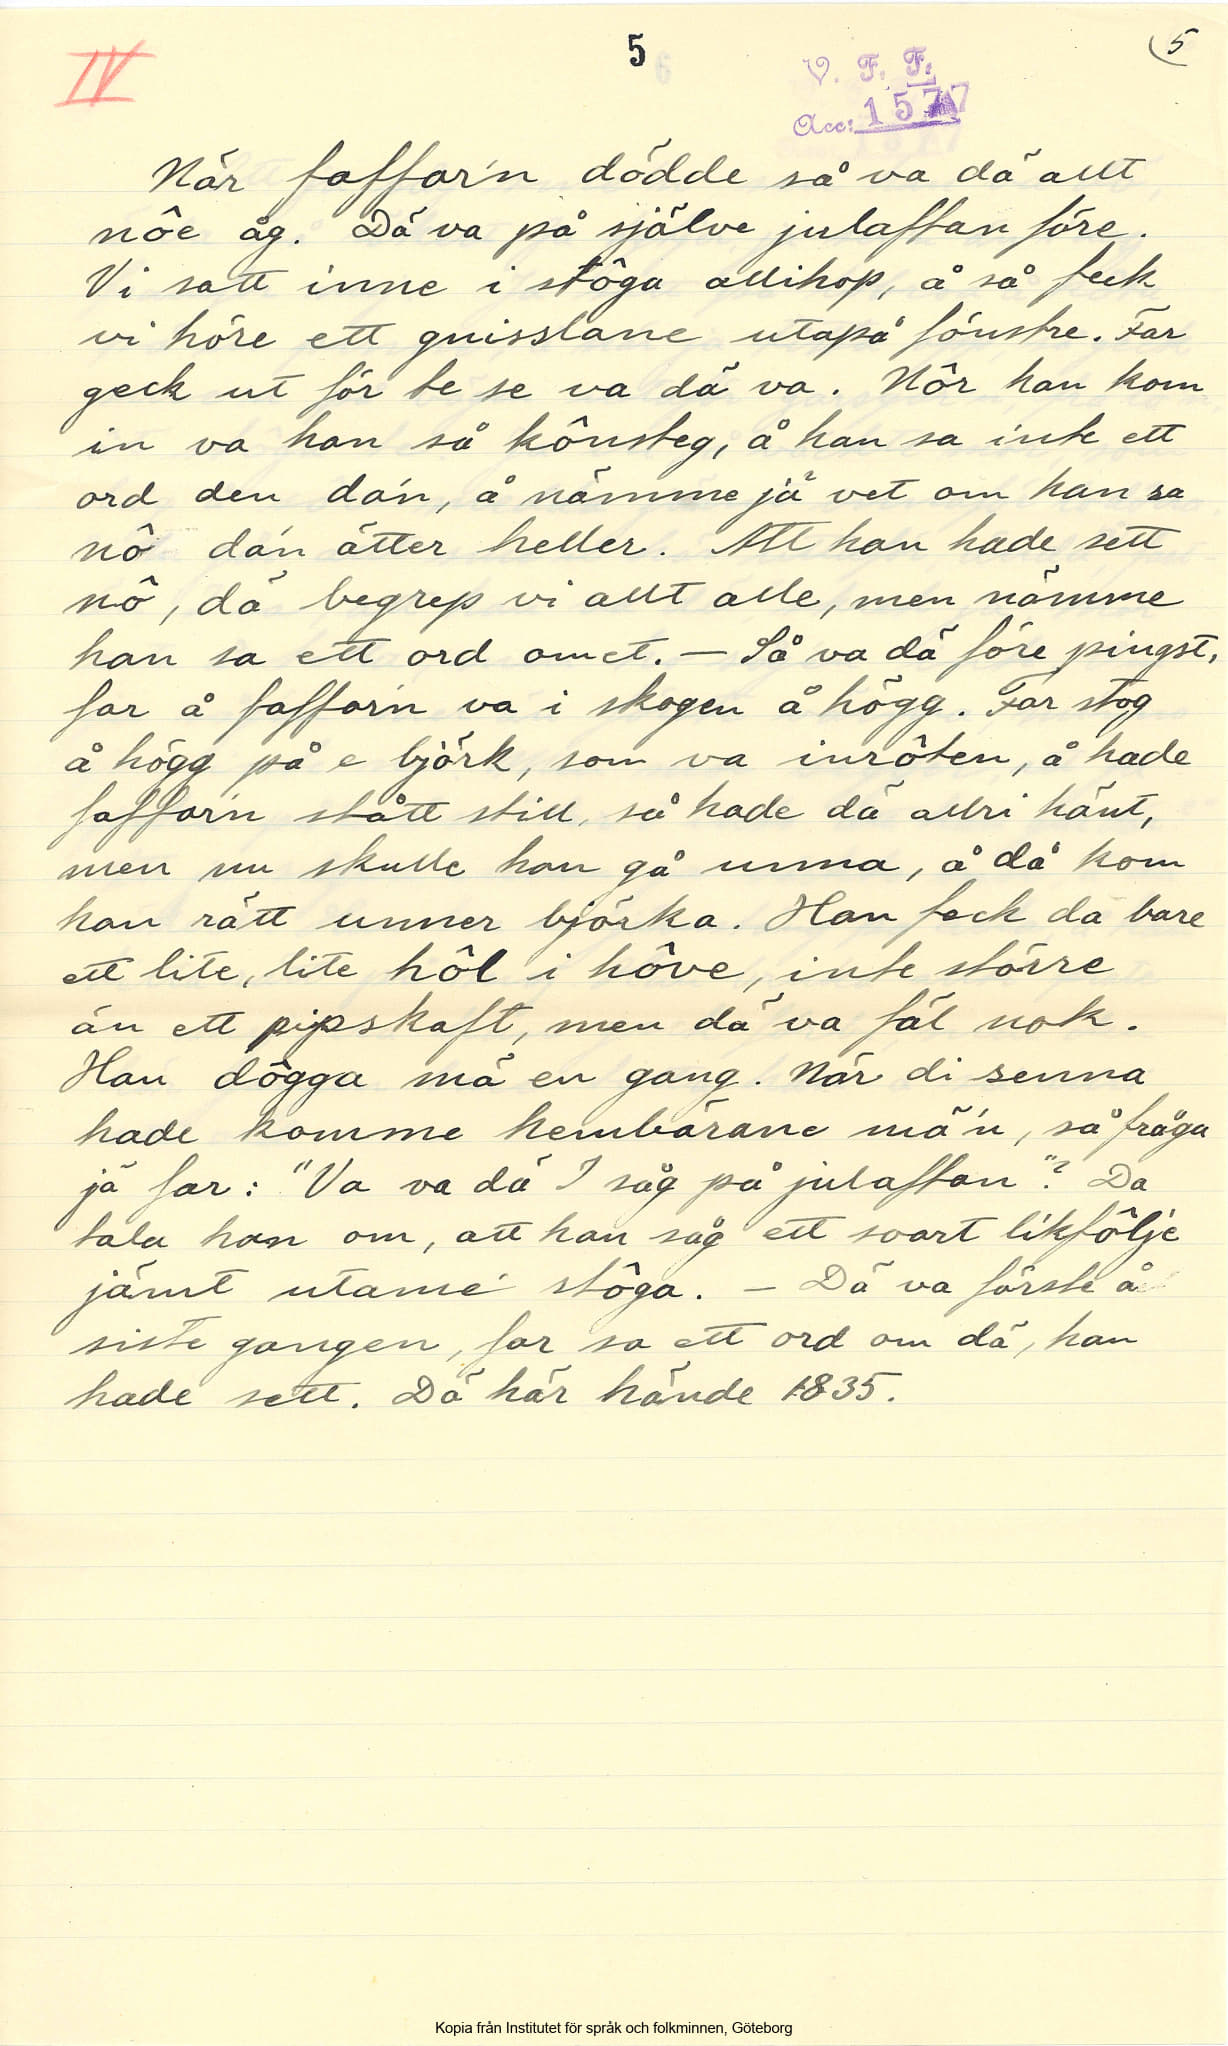 IV
5
(5
V. F. F.
Acc: 1577
När faffar'n dödde så va dä allt
nôe åg. Dä va på själve julaftan före.
Vi satt inne i stôga allihop, å så feck
vi höre ett gnisslane utapå fönstre. Far
geck ut för te se va dä va. Nôr han kom
in va han så kônsteg, å han sa inte ett
ord den da'n, å nämme jä vet om han sa
nô da'n ätter heller. Att han hade sett
nô, dä begrep vi allt alle, men nämme
han sa ett ord omet. — Så va dä före pingst,
far å faffar'n va i skogen å högg. Far stog
å högg på e björk, som va inrôten, å hade
faffar'n stått still, så hade dä allri hänt,
men nu skulle han gå unna, å då kom
han rätt unner björka. Han feck da bare
ett lite, lite hôl i hôve, inte större
än ett pipskaft, men dä va fäl nok.
Han dôgga mä en gang. När di senna
hade komme hembärane mä'n, så fråga
jä far: "Va va dä I såg på julaftan"? Da
tala han om, att han såg ett svart likfôlje
jämt utame stôga. — Dä va förste å
siste gangen, far sa ett ord om dä, han
hade sett. Dä här hände 1835.
Kopia från Institutet för språk och folkminnen, Göteborg